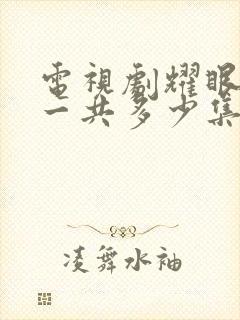 電視劇耀眼
一共多少集
凌舞水袖